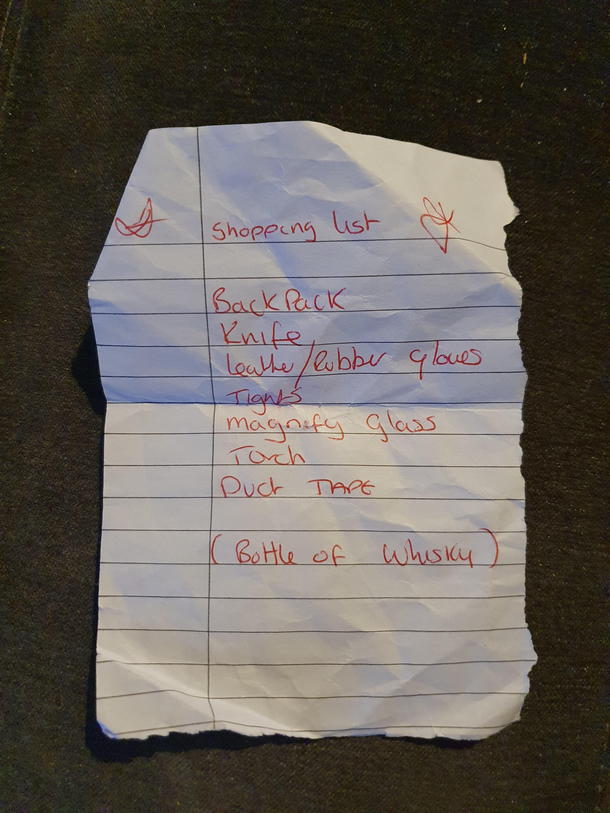 Shopping list
BackPack
Knife
leather/Rubber gloves
Tights
magnify Glass
Torch
Duct TAPE
(Bottle of Whisky)